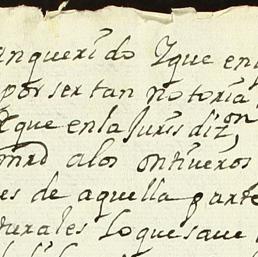 an querido Y que en
por ser tan notoria
Y que en la Juris dizon,
mrd a los ontiueros
es de aquella parte
turales Lo que saue